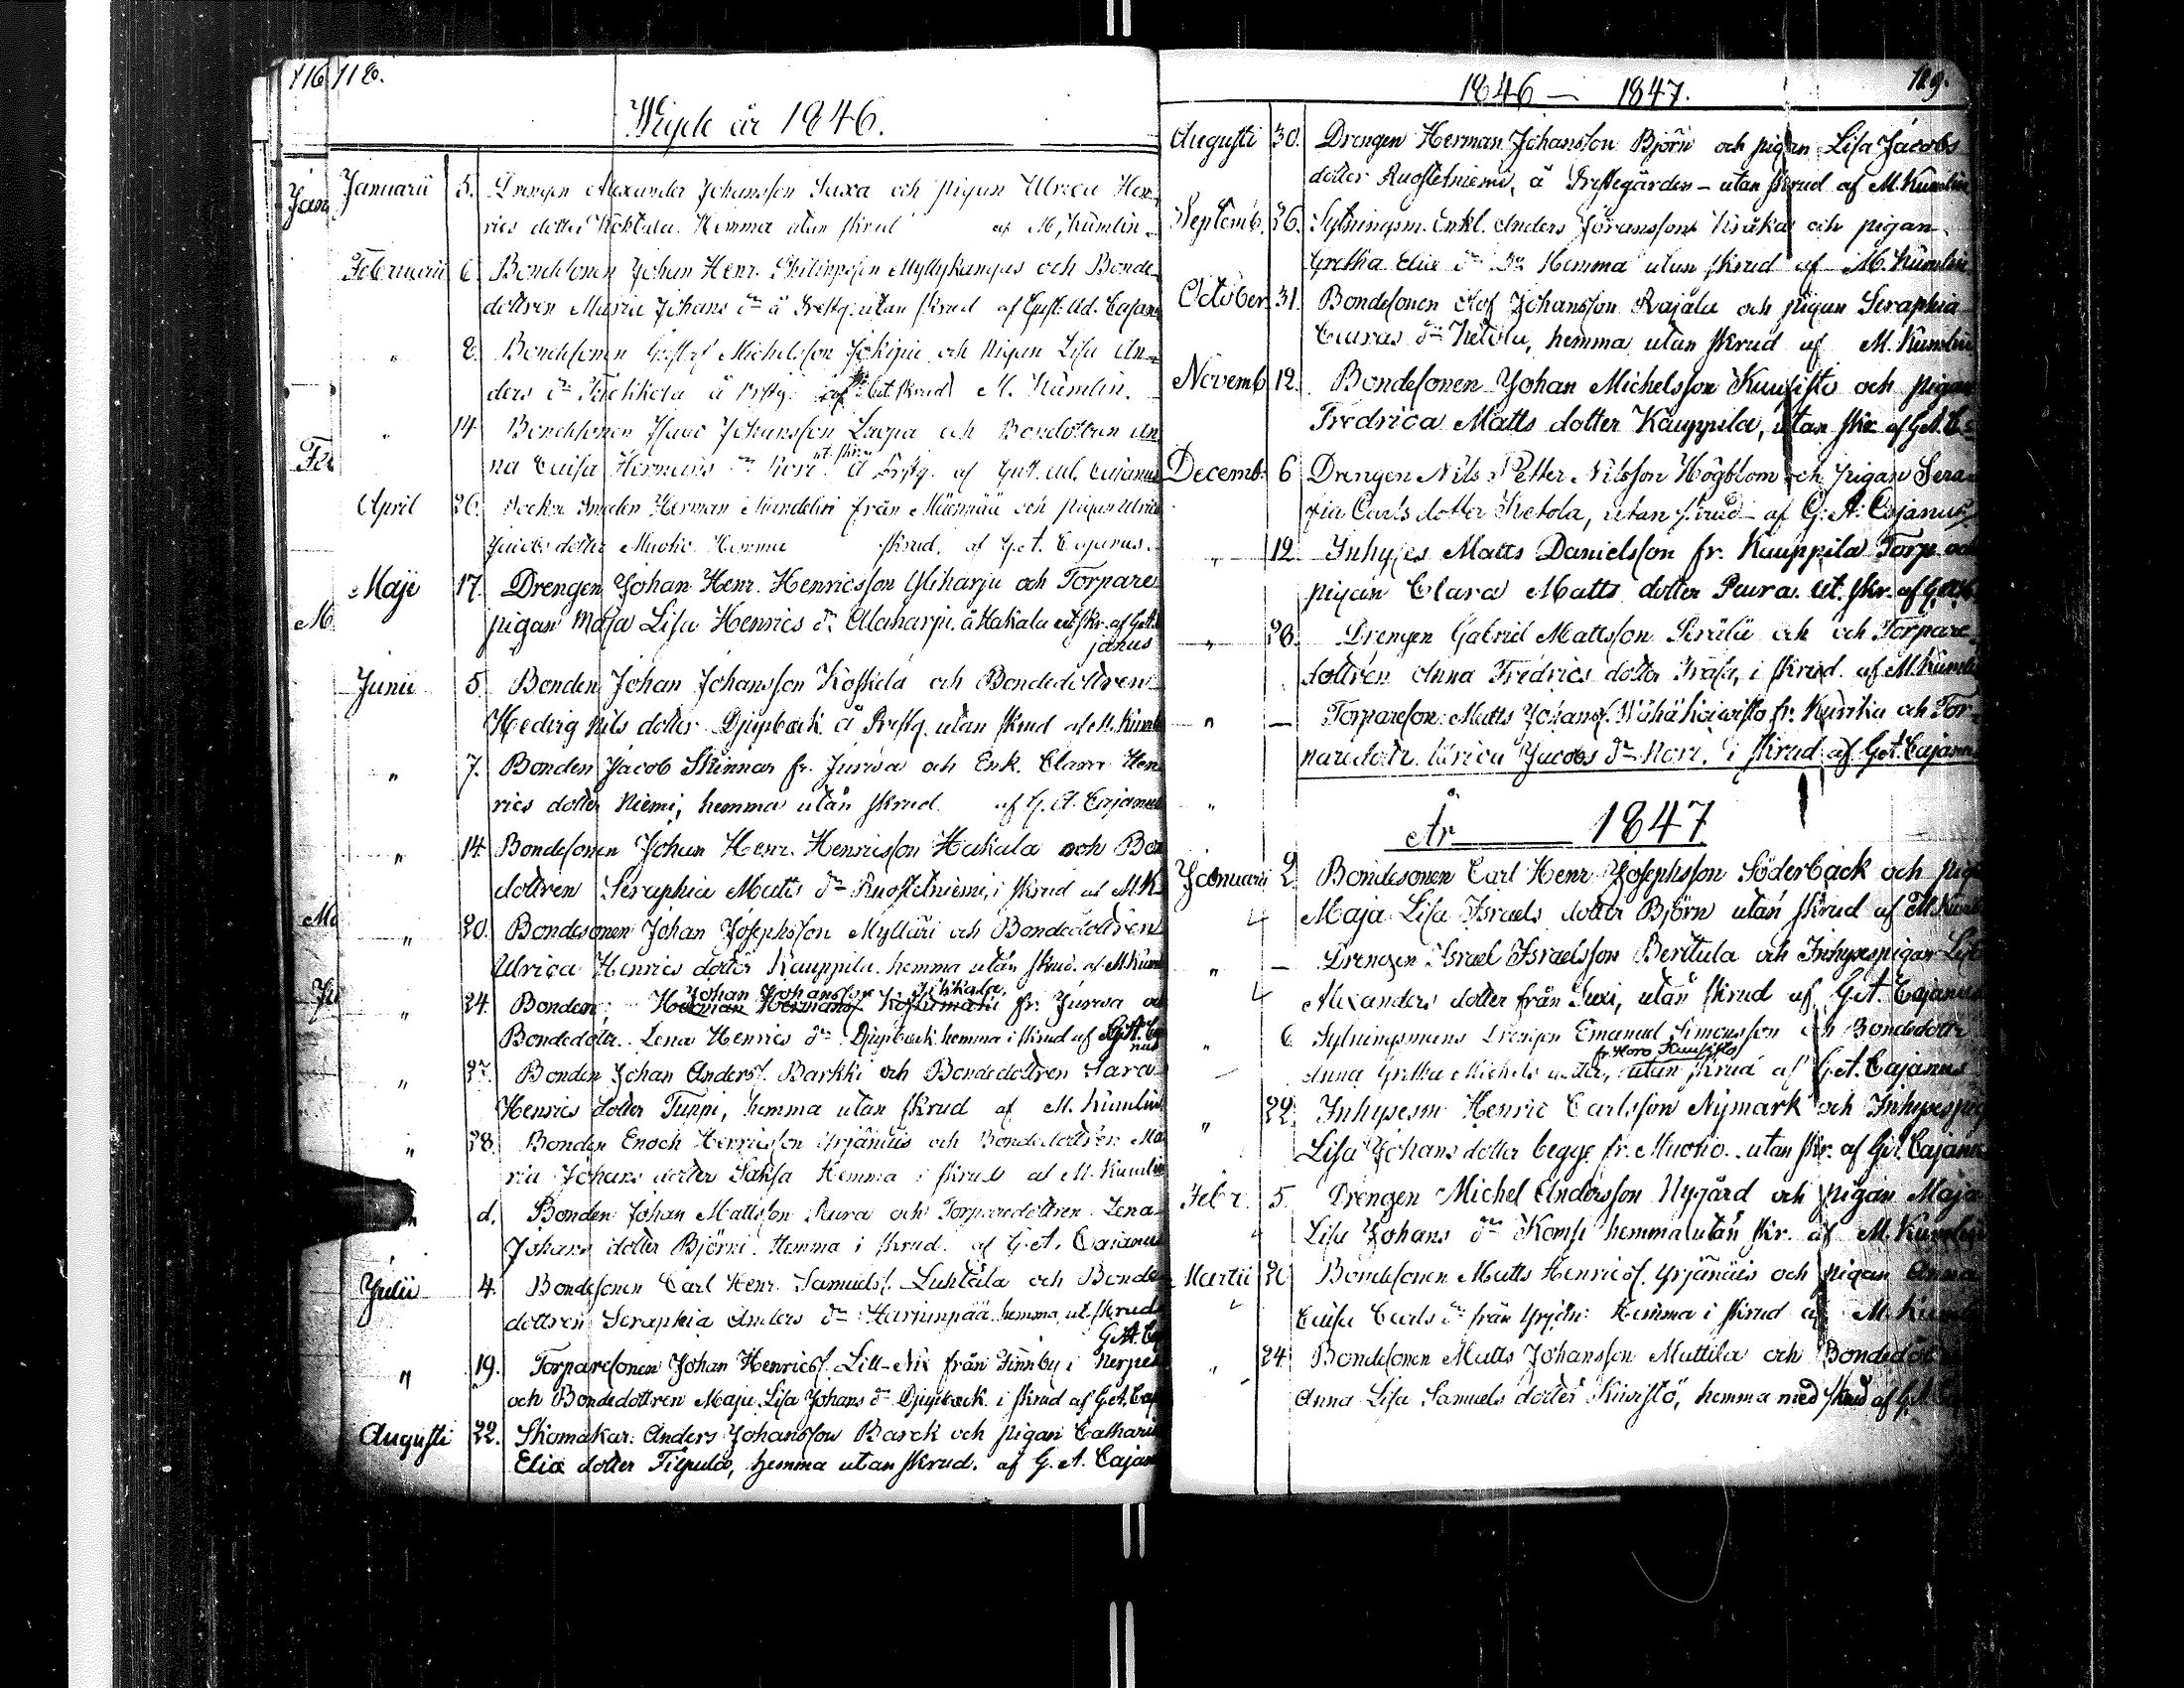 116 118.
Wigde år 1846.
Januarii 5. Drengen Alexander Johansson Saxa och pigan Ulrica Hen-
rics dotter Koskela. Hemma utan skrud af M. Kumlin.
Februarii 6. Bondesonen Johan Henr. Philippsson Myllykangas och Bonde-
dottren Maria Johans dr å Prestg. utan skrud af Gust. Ad. Cajan
" 8. Bondesonen Gustaf Michelsson Jokipii och Pigan Lisa An-
ders dr å Prstg. ut skrud M. Kumlin.
" 14 Bondesonen Isaac Johansson Luopa och Bondedottren An-
na Caisa Hermans dr Kori ut. skr. å Prstg. af Gust. Ad. Cajanus
April 26. Socken Smeden Herman Sundelin från och Pigan Ulrica
Jacobs dotter Muotio. Hemma skrud. af G. A. Cajanus.
Maji 17. Drengen Johan Henr. Henricsson Yliharju och Torpare
pigan Maja Lisa Henrics dr Alaharju. å Hakala ut skr. af G.A.
janus
Junii 5 Bonden Johan Johansson Koskela och Bondedottren
Hedvig Nils dotter Djupback. å Prestg. utan skrud af M. Kuml
" 7. Bonden Jacob Skinnar fr. Jurva och Enk. Clara Hen
rics dotter Niemi, hemma utan skrud. af G. A. Cajanus
" 14 Bondesonen Johan Henr. Henricsson Hakala och Bon
dottren Seraphia Matts dr Ruostetniemi, i skrud af M. K
" 20. Bondesonen Johan Josephsson Mylläri och Bondedottren
Ulrica Henrics dotter Kauppila. hemma utan skrud. af M. Kum
Johan Johansson
" 24. Bonden, Herman Hermans. fr. Jurva oc
Bondedottr. Lena Henrics dr Djupback. hemma i skrud af G.A. Ca
nus
" 27. Bonden Johan Anders. Barkki och Bondedottren Sara
Henrics dotter Tuppi, hemma utan skrud af M. Kumlin
" 28. Bonden Enoch Henricsson Yrjänäis och Bondedottren Ma
ria Johans dotter Saksa Hemma i skrud af M. Kumlin
d. Bonden Johan Mattsson Peura och Torparedottren Lena
Johans dotter Björni. Hemma i skrud. af G. A. Cajanus
Julii 4. Bondesonen Carl Henr. Samuels. Luhtala och Bonde
dottren Seraphia Anders dr Harjunpää. hemma, ut. skrud
G.A. Ca
" 19. Torparesonen Johan Henrics. Lill-Nix från Finnby i Nerpes
och Bondedottren Maja Lisa Johans dr Djupback. i skrud af G.A. Caj
Augusti 22. Skomakar. Anders Johansson Barck och pigan Cathari
Eliæ dotter Filpula, hemma utan skrud. af G. A. Cajan
1846 — 1847. 119.
Augusti 30. Drengen Herman Johansson Björn och pigan Lisa Jacobs
dotter Ruostetniemi, å Prestegården - utan skrud af M. Kumlin
Septemb. 26. Sytningsm. Enkl. Anders Jöransson Kråka och pigan
Gretha Eliæ dr dr Hemma utan skrud af M. Kumlin
October 31. Bondesonen Olof Johansson Rajala och pigan Seraphia
dr Ketola, hemma utan skrud af M. Kumlin
Novemb. 12. Bondesonen Johan Michelsson Kuusisto och pigan
Fredrica Matts dotter Kauppila, utan skr af G.A. C
Decemb. 6 Drengen Nils Petter Nilsson Högblom och pigan Sera-
fia Carls dotter Ketola, utan skrud - af G. A. Cajanus
" 12. Inhyses Matts Danielsson fr. Kauppila Torp. och
pigan Clara Matts dotter Peura. ut. skr. af G.A.C.
" 28. Drengen Gabriel Mattsson Perälä och och Torpare-
dottren Anna Fredrics dotter, i skrud. af M. Kumli
" — Torpareson: Matts Johans. Wähäkoiwisto fr. Kurikka och Tor-
paredottr. Ulrica Jacobs dr Kori. i skrud af G.A. Cajanu
"
År 1847
Januarii 2. Bondesonen Carl Henr. Josephsson Söderback och pig
Maja Lisa Israels dotter Björn utan skrud af M. Kuml
" — Drengen Israel Israelsson Berttula och Inhysespigan Lisa
Alexanders dotter från Suxi, utan skrud af G.A. Cajanus
" 6 Sytningsmans Drengen Emanuel Simonsson och Bondedottr.
fr. Horo Kuusisto
Anna Gretha Michels dotter, utan skrud af G.A. Cajanus
" 22. Inhysesm Henric Carlsson Nymark och Inhysespig
Lisa Johans dotter begge fr. Muotio. utan skr. af G.A. Cajanu
Febr. 5. Drengen Michel Andersson Nygård och pigan Maja
Lisa Johans dr Komsi hemma utan skr. af M. Kumlin
Martii 20 Bondesonen Matts Henrics. Yrjänäis och pigan Anna
Caisa Carls dr från Yrjän: Hemma i skrud af M. Kumli
" 24 Bondesonen Matts Johansson Mattila och Bondedot
Anna Lisa Samuels dotter Kiwistö, hemma med skrud af G.A. Ca